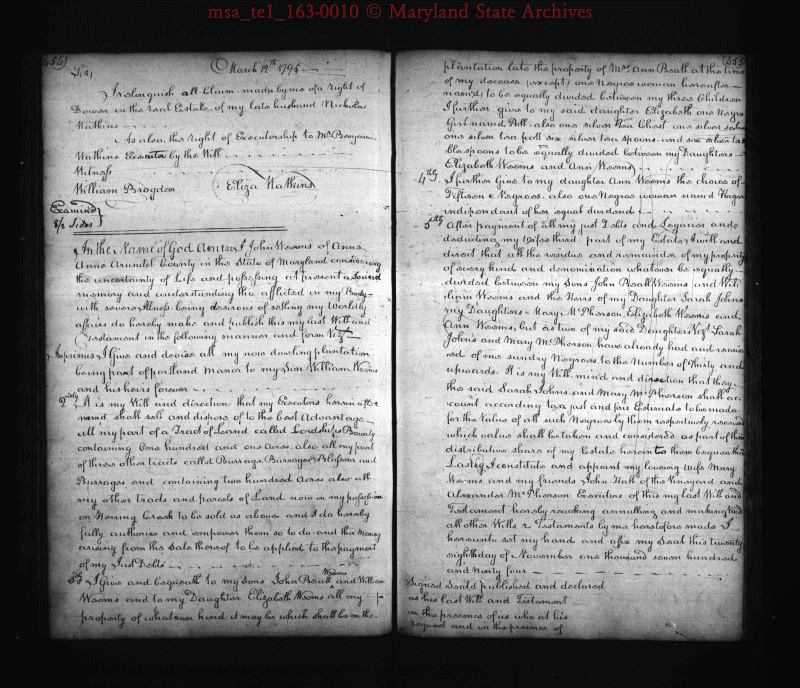 msa_te1_163-0010 © Maryland State Archives
454
March 12th 1795
Sir,
I relinquish all Claim made by me of a right of
Dower in the real Estate of my late husband Nicholas
Watkins
As also, the right of Executorship to Mr. Benjamin
Watkins Executor by the Will
Witness
William Brogden Eliza Watkins
Examined
8/2 Sides
In the Name of God Amen I John Weems of Anne
Anne Arundel County in the State of Maryland considering
the uncertainty of Life and possessing at present a sound
memory and understanding tho afflicted in my Body
with severe Illness being desirous of setling my Worldly
affairs do hereby make and publish this my last Will and
Testament in the following manner and form Vizt
Imprimus I Give and devise all my now dweling plantation
being part of portland Manor to my Son William Weems
and his heirs forever
2ndly It is my Will and direction that my Executors herein after
nam'd shall sell and dispose of to the best Advantage
all my part of a Tract of Land called Lordships Bounty
containing One hundred and one Acres. also all my part
of three other tracts called Burrage, Burrages Blossom and
Burrages end containing two hundred Acres also all
my other tracts and parcels of Land now in my possession
on Herring Creek to be sold as above and I do hereby
fully authorise and empower them so to do and the Money
arising from the Sale thereof to be applied to the payment
of my Just Debts
3d I Give and bequeath to my Sons John Beall Weems and William
Weems and to my Daughter Elizabeth Weems all my
property of whatever kind it may be which shall be on the
455
plantation late the property of Mrs. Ann Beall at the time
of my decease (except) one Negroe woman hereafter
named) to be equally divided between my three Children
I further give to my said daughter Elizabeth one Negro
Girl named Poll. also one silver Tea Chest one silver
one silver tea pott six silver tea spoons and six silver ta
ble spoons to be equally divided between my Daughters
Elizabeth Weems and Ann Weems
4thly I further Give to my daughter Ann Weems the choice of
Fifteen Negroes. also one Negroe woman named
independant of her equal dividend
5thly After payment of all my just Debts and Legacies and
deducting my Wifes third part of my Estate, I will and
direct that all the residue and remainder of my property
of every kind and denomination whatever be equally
divided between my Sons John Beall Weems and Wil
liam Weems and the Heirs of my Daughter Sarah Johns
my Daughters Mary McPherson, Elizabeth Weems and
Ann Weems, but as two of my said Daughters Vizt Sarah
Johns and Mary McPherson have already had and receiv
ed of me sundry Negroes to the Number of Thirty and
upwards. It is my Will mind and direction that they
the said Sarah Johns and Mary McPherson shall ac
count according to a just and fair Estimate to be made
for the Value of all such Negroes by them respectively received
which value shall be taken and considered as part of their
distributive share of my Estate herein to them bequeathed
Lastly I constitute and appoint my loveing Wife Mary
Weems and my friends John Hall of the Vineyard and
Alexander McPherson Executors of this my last Will and
Testament hereby revoking annulling and making Void
all other Wills & Testaments by me heretofore made I
hereunto set my hand and affix my Seal this twenty
eighth day of November one thousand seven hundred
and Ninty four
Signed Seal'd published and declared
as his last Will and Testament
in the presence of us who at his
request and in the presence of